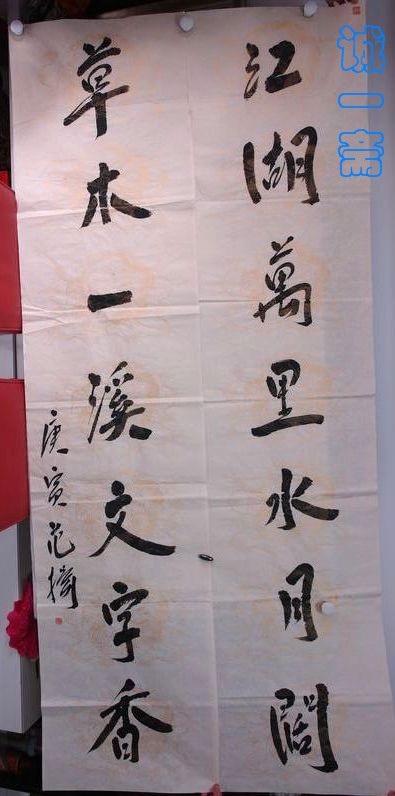 江湖萬里水月闊
草木一溪文字香
庚寅范揚
诚一斋